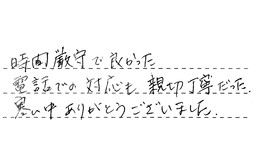 時間厳守で良かった
電話での対応も親切丁寧だった.
寒い中ありがとうございました.